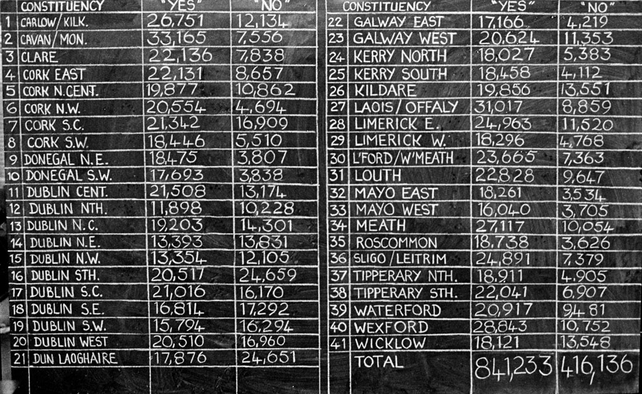 CONSTITUENCY "YES" "NO"
1 CARLOW/KILK. 26,751 12,134
2 CAVAN/MON. 33,165 7,556
3 CLARE 22,136 7,838
4 CORK EAST 22,131 8,657
5 CORK N.CENT. 19,877 10,862
6 CORK N.W. 20,554 4,694
7 CORK S.C. 21,342 16,909
8 CORK S.W. 18,446 5,510
9 DONEGAL N.E. 18,475 3,807
10 DONEGAL S.W. 17,693 3,838
11 DUBLIN CENT. 21,508 13,174
12 DUBLIN NTH. 11,898 10,228
13 DUBLIN N.C. 19,203 14,301
14 DUBLIN N.E. 13,393 13,831
15 DUBLIN N.W. 13,354 12,105
16 DUBLIN STH. 20,517 24,659
17 DUBLIN S.C. 21,016 16,170
18 DUBLIN S.E. 16,814 17,292
19 DUBLIN S.W. 15,794 16,294
20 DUBLIN WEST 20,510 16,960
21 DUN LAOGHAIRE 17,876 24,651
CONSTITUENCY "YES" "NO"
22 GALWAY EAST 17,166 4,219
23 GALWAY WEST 20,624 11,353
24 KERRY NORTH 18,027 5,383
25 KERRY SOUTH 18,458 4,112
26 KILDARE 19,856 13,551
27 LAOIS/OFFALY 31,017 8,859
28 LIMERICK E. 24,963 11,520
29 LIMERICK W. 18,296 4,768
30 L'FORD/W'MEATH 23,665 7,363
31 LOUTH 22,828 9,647
32 MAYO EAST 18,261 3,534
33 MAYO WEST 16,040 3,705
34 MEATH 27,117 10,054
35 ROSCOMMON 18,738 3,626
36 SLIGO/LEITRIM 24,891 7,379
37 TIPPERARY NTH. 18,911 4,905
38 TIPPERARY STH. 22,041 6,907
39 WATERFORD 20,917 9481
40 WEXFORD 28,843 10,752
41 WICKLOW 18,121 13,548
TOTAL 841,233 416,136